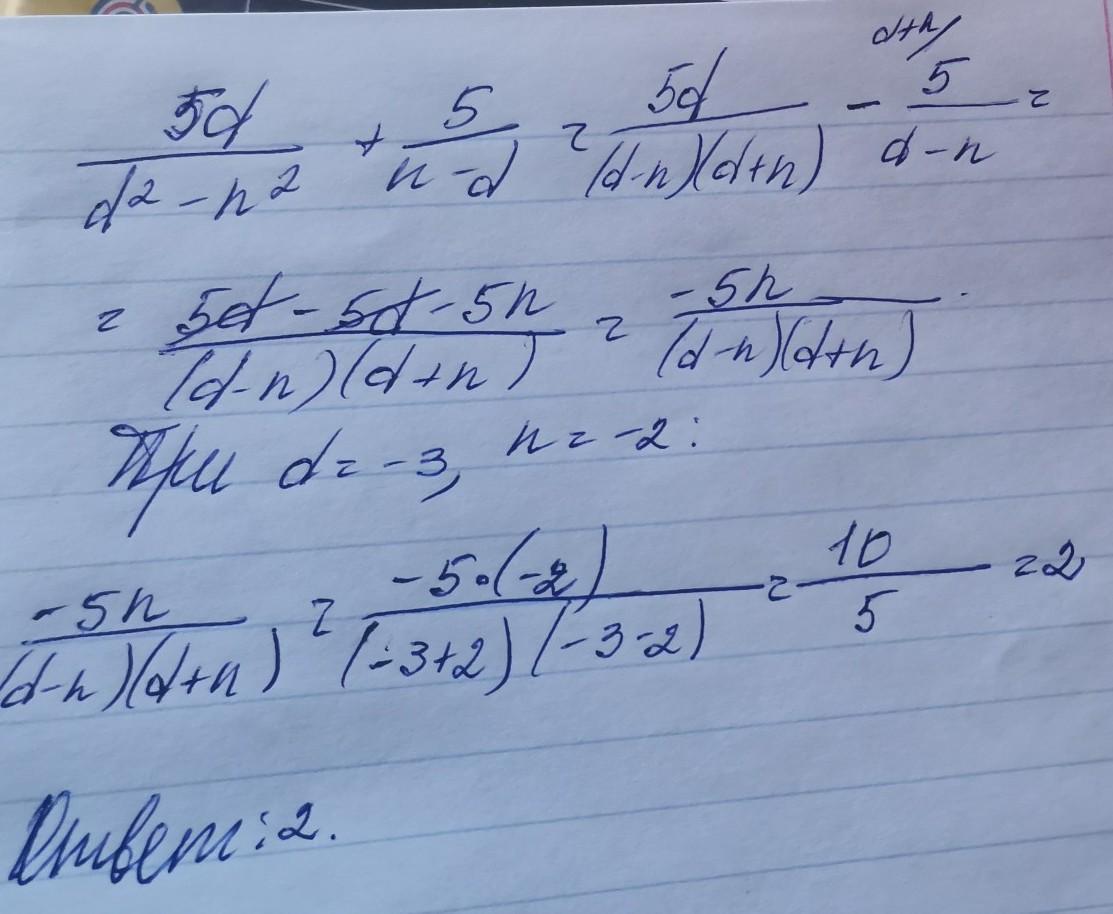 d+n/
5d/(d²-n²) + 5/(n-d) = 5d/((d-n)(d+n)) - 5/(d-n) =
= (5d-5d-5n)/((d-n)(d+n)) = -5n/((d-n)(d+n)).
При d=-3, n=-2:
-5n/((d-n)(d+n)) = -5·(-2)/((-3+2)(-3-2)) = 10/5 = 2
Ответ: 2.